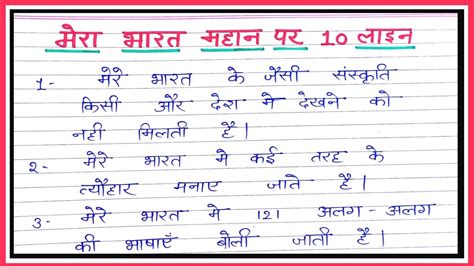 मेरा भारत महान पर 10 लाइन
1- मेरे भारत के जैसी संस्कृति
किसी और देश मे देखने को
नही मिलती है।
2- मेरे भारत मे कई तरह के
त्यौहार मनाए जाते है।
3- मेरे भारत मे 121 अलग-अलग
की भाषाएँ बोली जाती है।